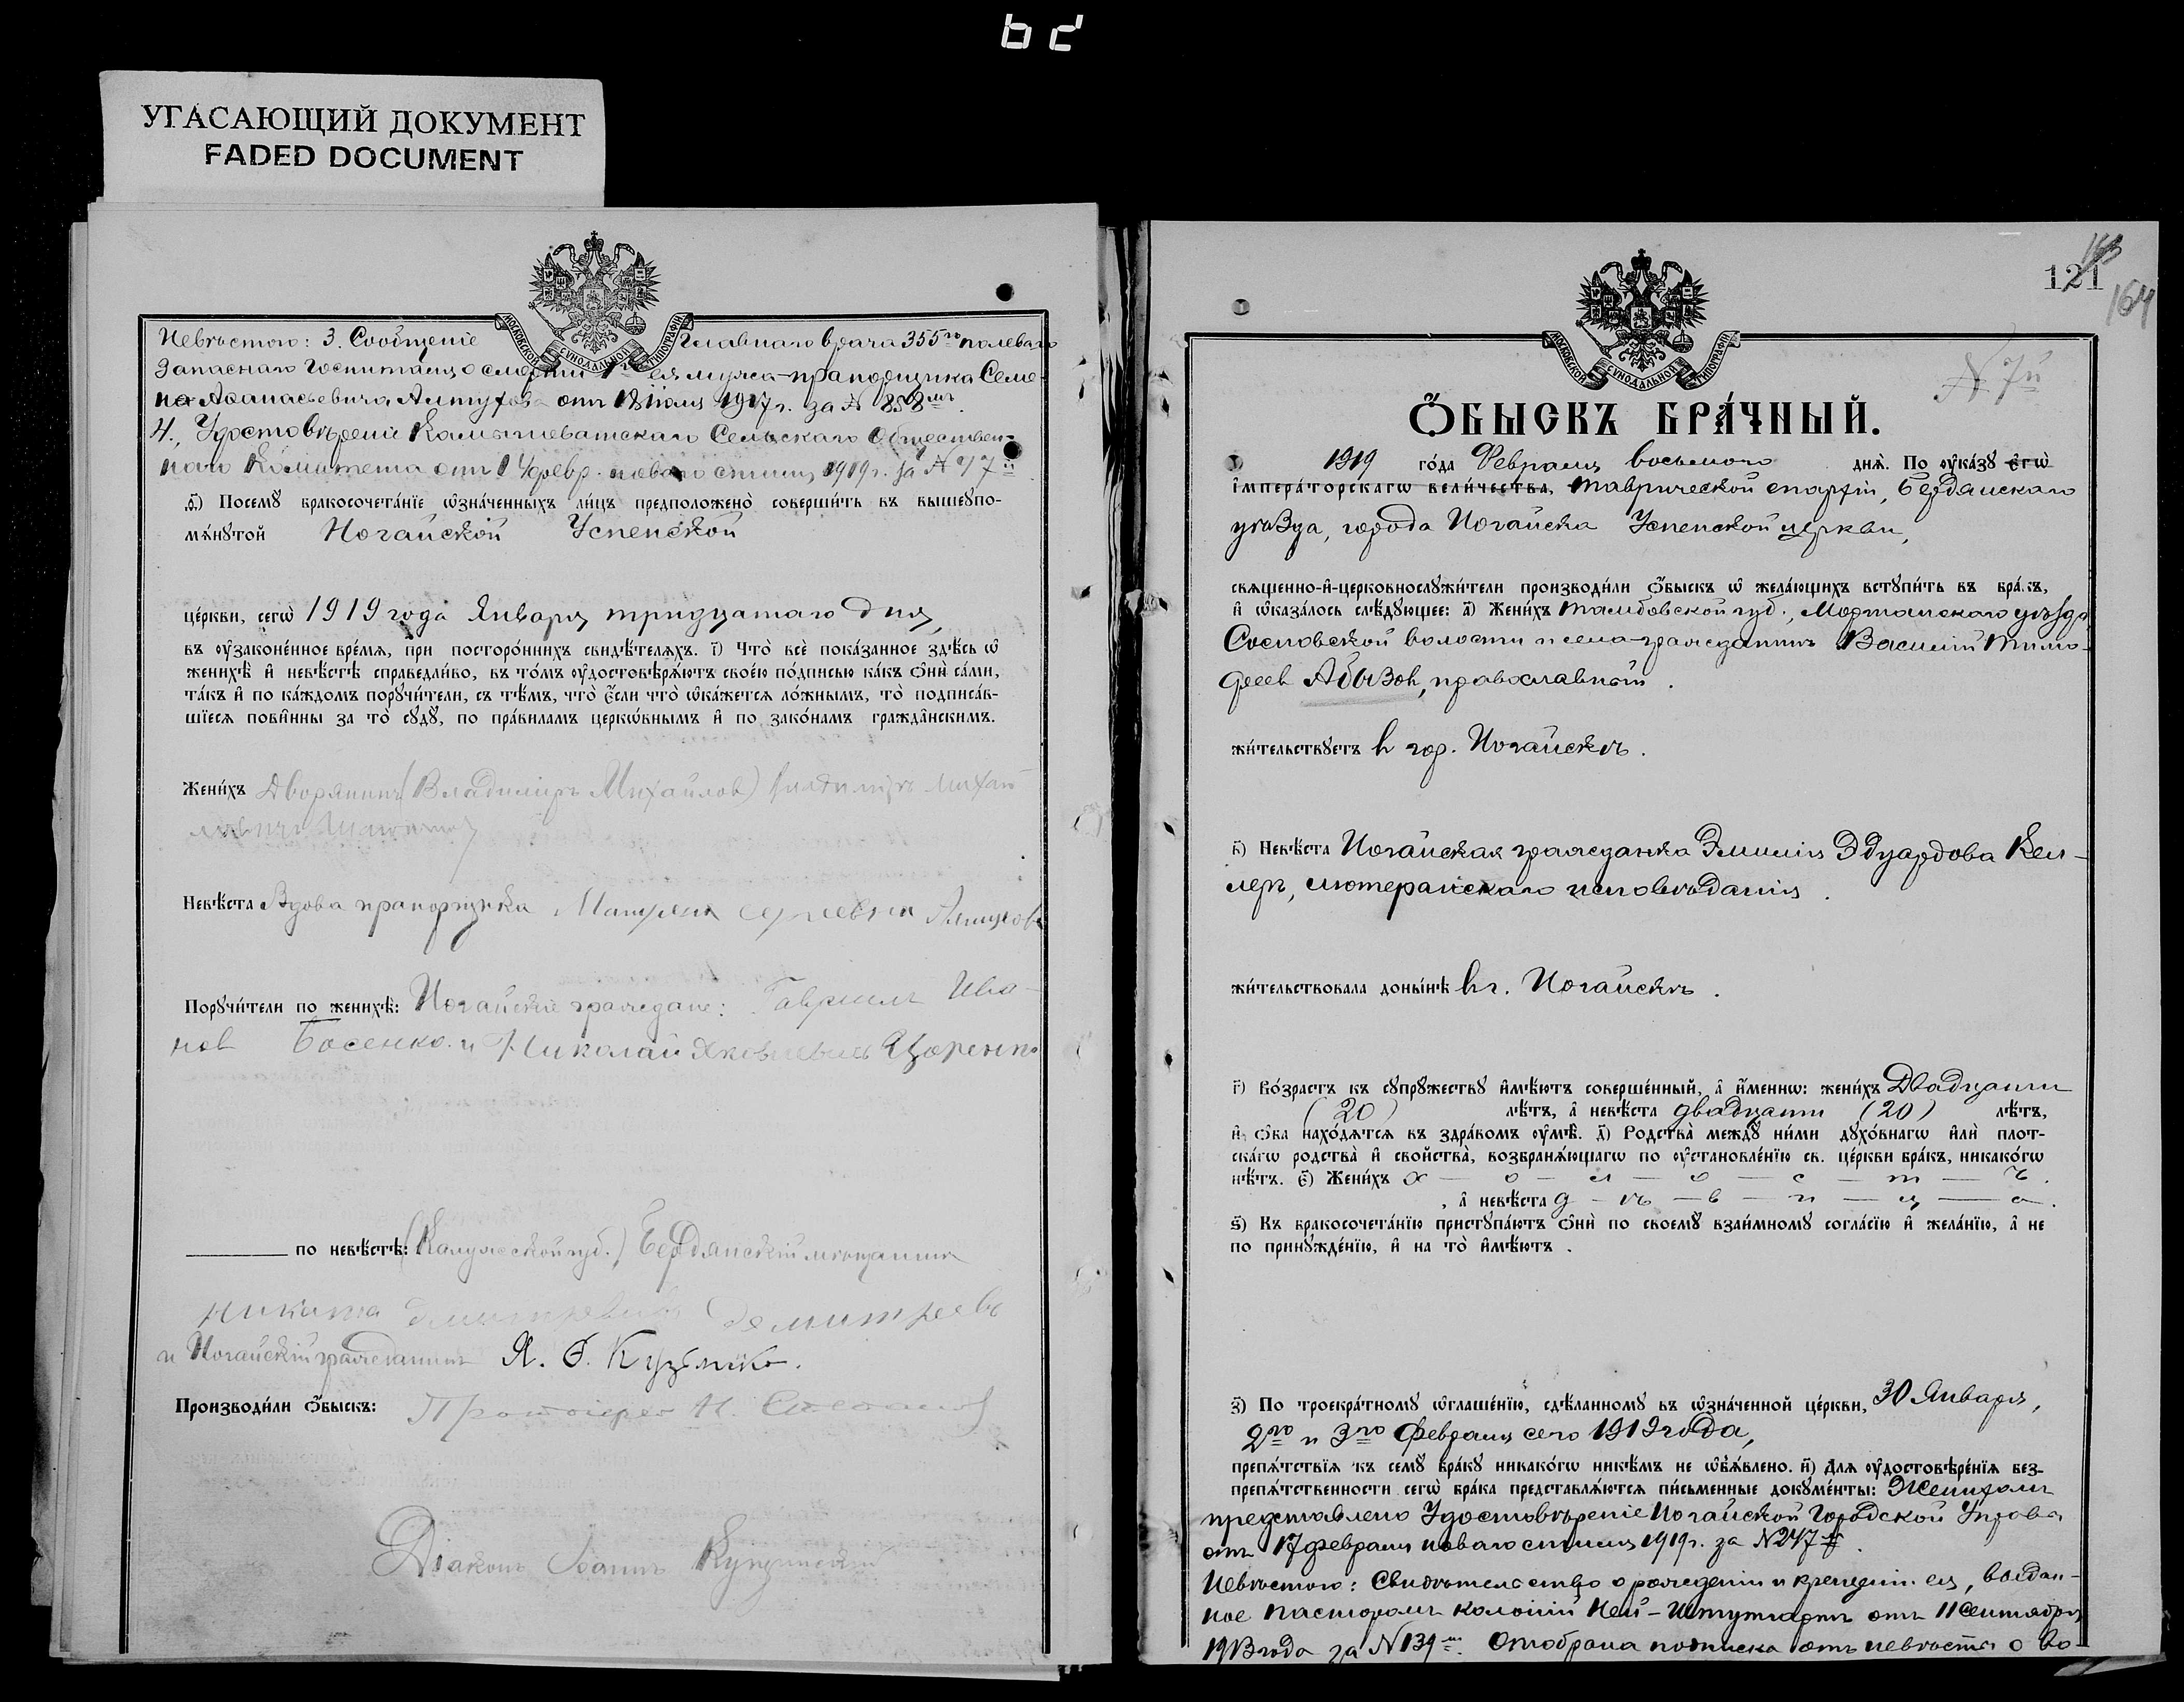 УГАСАЮЩИЙ ДОКУМЕНТ
FADED DOCUMENT
МОСКОВСКОЙ СУНОДАЛЬНОЙ ТИПОГРАФІИ
Невѣстою: 3. Сообщеніе Главнаго врача 355го полеваго
Запаснаго Госпиталя о смерти 1го ея мужа - прапорщика Семе-
на Аѳанасьевича Алтухова отъ 18 іюля 1917 г. за № 858мъ.
4., Удостовѣреніе Камышеватскаго Сельскаго Обществен-
наго Комитета отъ Февр. новаго стиля 1919 г. за № 77
ѳ҃.) Посемꙋ бракосочетáнїе ѡзнáченныхъ лицъ предположенò совершить въ вышеꙋпо-
мѧнꙋтой Ногайской Успенской
цéркви, сегѡ 1919 года Января тридцатаго дня,
въ оу҆законéнное врéмѧ, при посторóннихъ свидѣ́телѧхъ. і҃) Что̀ всѐ покáзанное здѣ́сь ѡ҆
женихѣ̀ и҆ невѣ́стѣ справедли́во, въ тóмъ оу҆достовѣрѧ́ютъ своéю пóдписью кáкъ ѻ҆нѝ сáми,
тáкъ и҆ по кáждомъ порꙋчи́тели, съ тѣ́мъ, что̀ є҆́сли что̀ ѡ҆кáжетсѧ лóжнымъ, то̀ подписáв-
шїесѧ пови́нны за то̀ сꙋдꙋ̀, по прáвиламъ церкѡ́внымъ и҆ по закóнамъ граждáнскимъ.
Жени́хъ Дворянинъ (Владиміръ Михайлов) Владиміръ Михай
Невѣ́ста Вдова прапорщика Сергеевна Алтухова
Порꙋчи́тели по женихѣ̀: Ногайскіе граждане: Гавриилъ Ива-
нов Босенко и Николай Яковлевичъ Царенко
по невѣ́стѣ: (Калужской губ.) Бердянскій мѣщанинъ
Никита Дмитревичъ Демитреевъ
и Ногайскій гражданинъ Я. Ф. Кузьмико.
Производи́ли ѻ҆́быскъ: Протоіерей Н.
Діаконъ Іоаннъ
121
164
МОСКОВСКОЙ СУНОДАЛЬНОЙ ТИПОГРАФІИ
№ 7й
Ѻ҆́БЫСКЪ БРА́ЧНЫЙ.
1919 гóда Февраля восьмого днѧ̀. По оу҆кáзꙋ є҆гѡ̀
і҆мперáторскагѡ вели́чества, Таврической епархіи, Бердянскаго
уѣзда, города Ногайска Успенской церкви,
свѧщенно-и҆-церковнослꙋжи́тели производи́ли ѻ҆́быскъ ѡ҆ желáющихъ встꙋпи́ть въ брáкъ,
и҆ ѡ҆казáлось слѣ́дꙋющее: а҃) Жени́хъ Тамбовской губ., Моршанскаго уѣзда
Сосновской волости и села - гражданинъ Василій Тимо-
феев Абызов, православный.
жи́тельствꙋетъ в гор. Ногайскѣ.
в҃) Невѣ́ста Ногайская гражданка Эмилія Эдуардова Кел-
леръ, лютеранскаго исповѣданія.
жи́тельствовала донын́ѣ в г. Ногайскѣ.
г҃) Вóзрастъ къ сꙋпрꙋ́жествꙋ и҆мѣ́ютъ совершéнный, а҆ и҆́меннѡ: жени́хъ Двадцати
(20) лѣ́тъ, а҆ невѣ́ста двадцати (20) лѣ́тъ,
и҆ ѻ҆́ба нахóдѧтсѧ въ здрáвомъ оу҆мѣ̀. д҃) Родства̀ междꙋ̀ ни́ми дꙋхóвнагѡ и҆лѝ плот-
скáгѡ родства̀ и҆ свойства̀, возбранѧ́ющагѡ по оу҆становлéнїю св. цéркви брáкъ, никакóгѡ
нѣ́тъ. є҃) Жени́хъ х — о — л — о — с — т — ъ.
, а҆ невѣ́ста д — ѣ — в — и — ц — а.
ѕ҃) Къ бракосочетáнїю пристꙋпáютъ ѻ҆нѝ по своемꙋ̀ взаи́мномꙋ соглáсїю и҆ желáнїю, а҆ не
по принꙋждéнїю, и҆ на то̀ и҆мѣ́ютъ .
з҃) По троекрáтномꙋ ѡ҆глашéнїю, сдѣ́ланномꙋ въ ѡ҆знáченной цéркви, 30 Января,
2го и 3го Февраля сего 1919 года,
препѧ́тствїѧ къ семꙋ̀ брáкꙋ никакóгѡ никѣ́мъ не ѡ҆б̾ѧ́влено. и҃) Длѧ оу҆достовѣрéнїѧ без-
препѧ́тственности сегѡ̀ брáка представлѧ́ютсѧ пи́сьменные докꙋмéнты: Женихомъ
представлено Удостовѣреніе Ногайской Городской Управы
отъ 17 февраля новаго стиля 1919 г. за № 247
Невѣстою: Свидѣтельство о рожденіи и крещеніи ея, выдан-
ное пасторомъ колоніи Ней-Штутгартъ отъ 11 Сентября
1913 года за № 139мъ. Отобрана подписка отъ невѣсты о во-